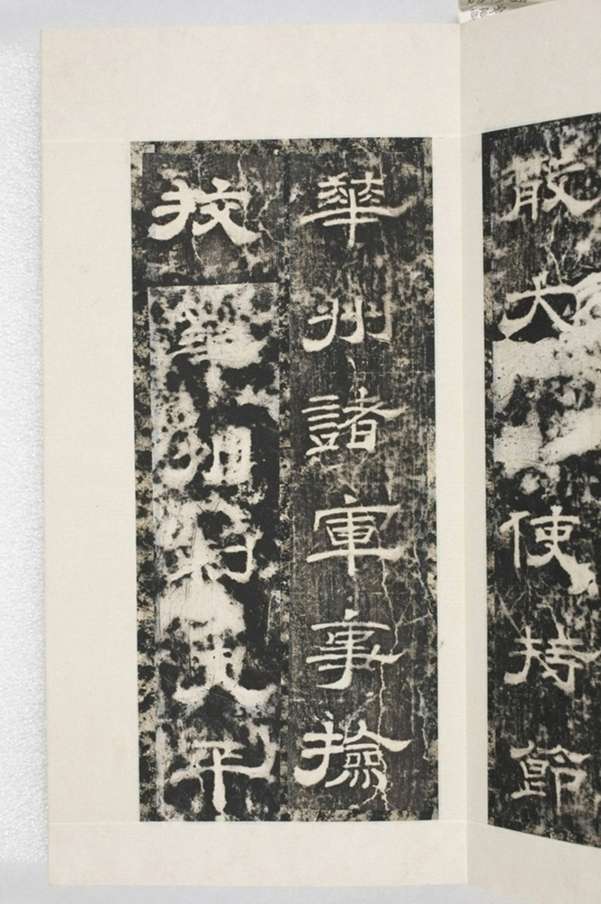 散大使持節
華州諸軍事撿
挍華州刺史平